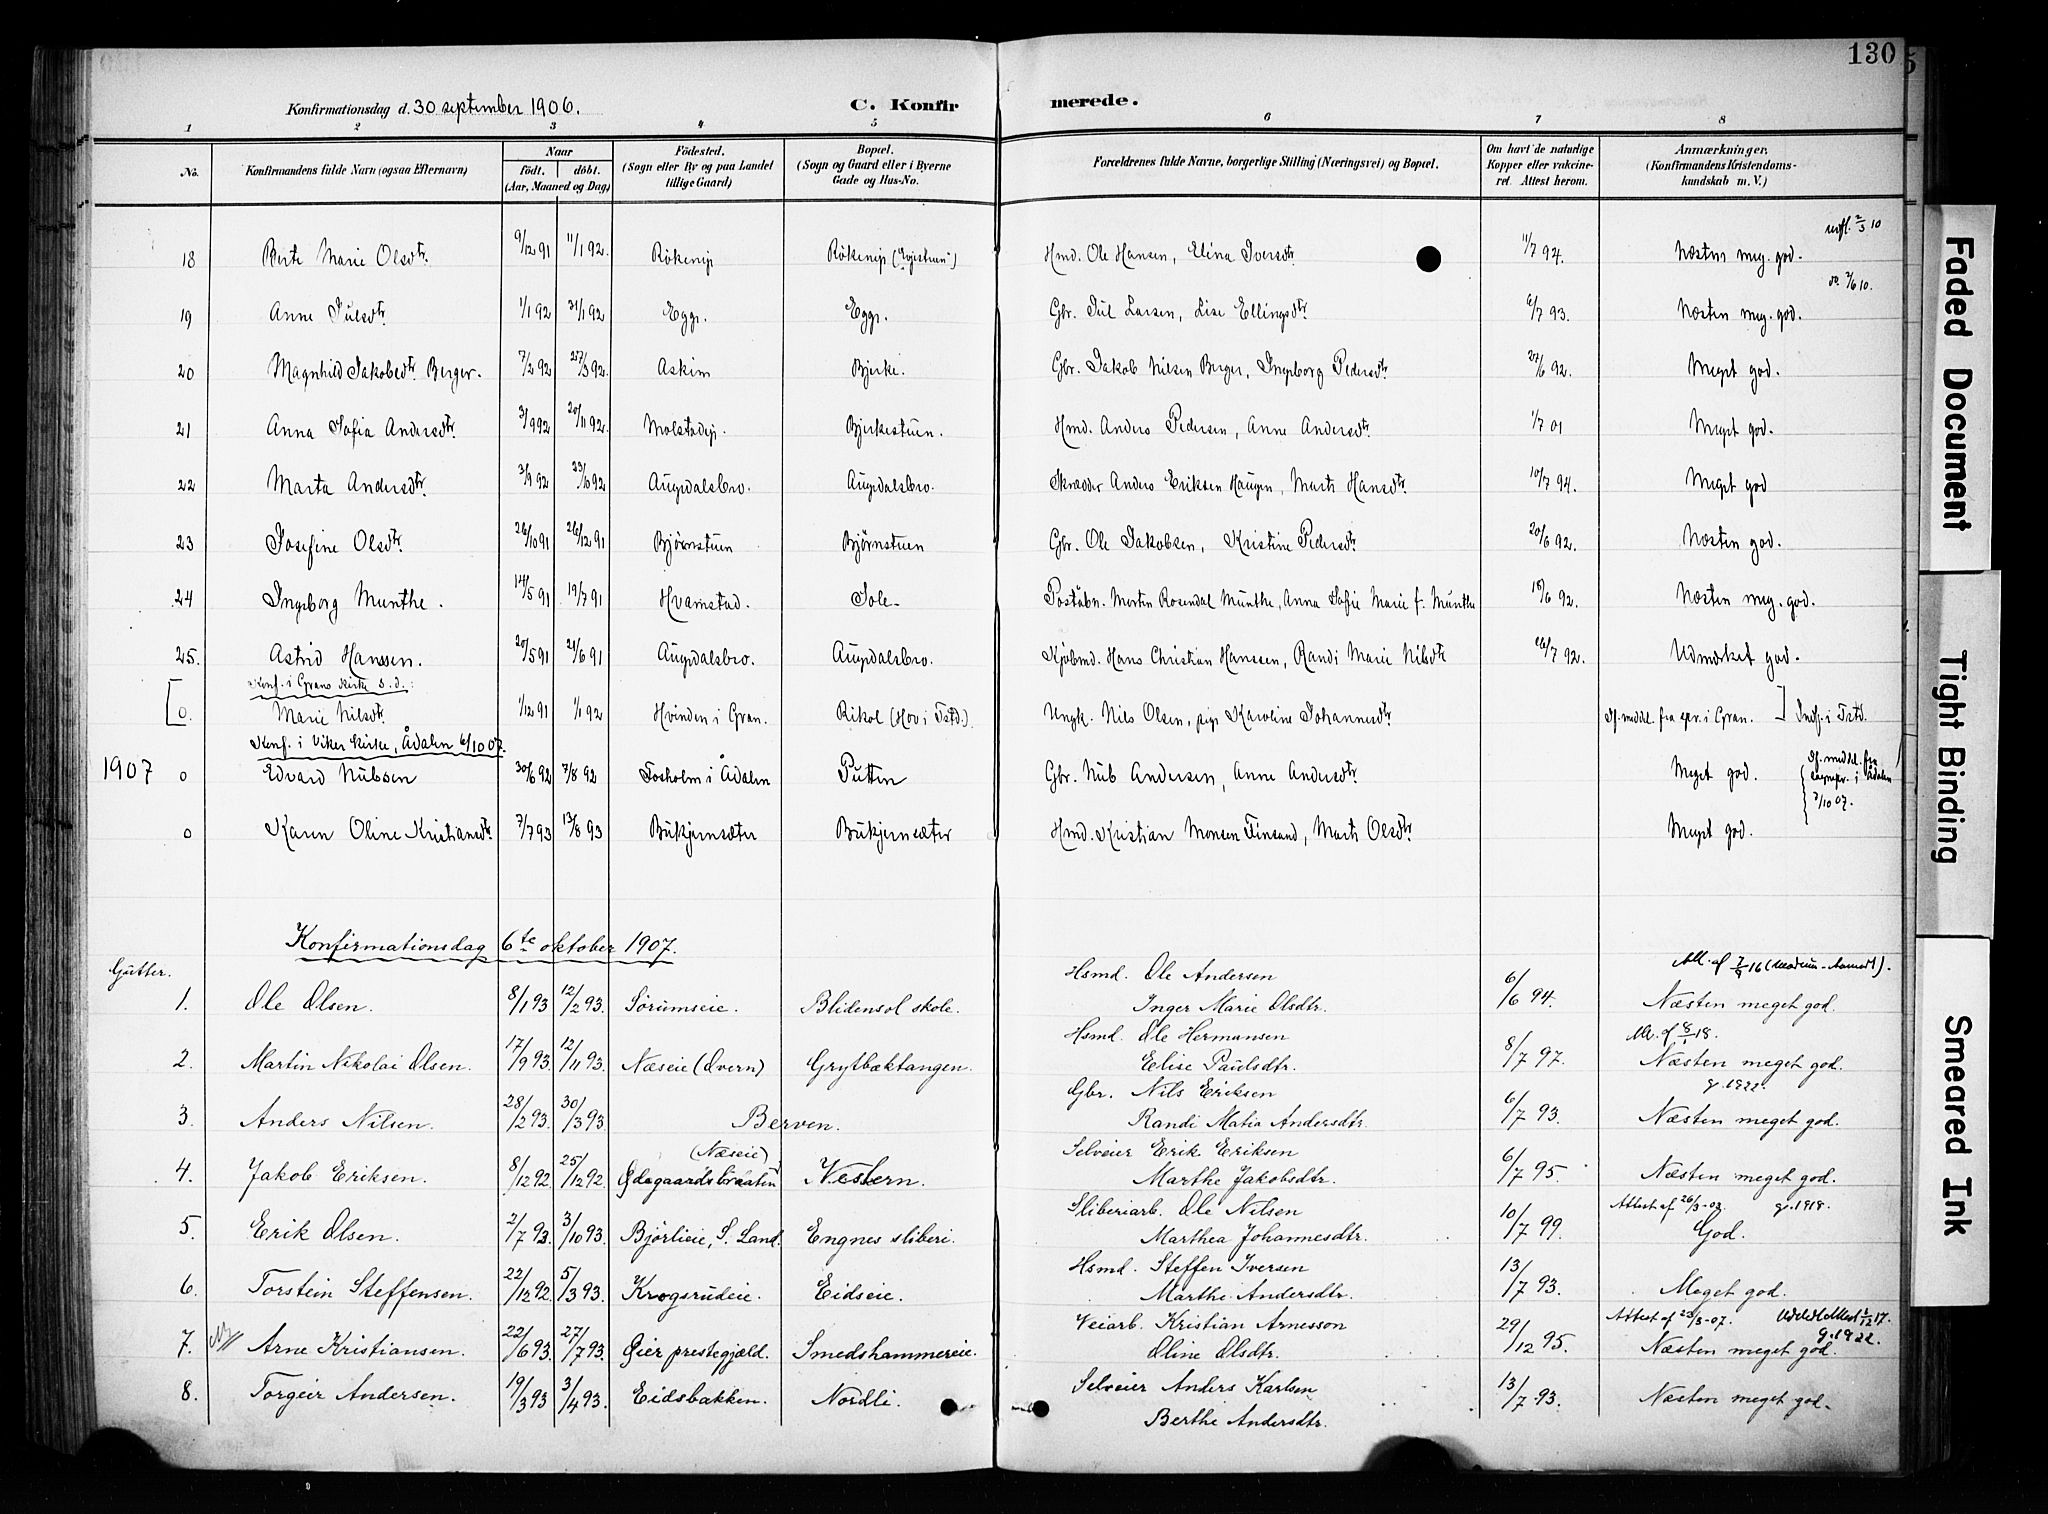 130
Konfirmationsdag d. 30 september 1906.
C. Konfirmerede.
1 2 3 4 5 6 7 8
No. Konfirmandens fulde Navn (ogsaa Efternavn) Naar født. døbt. (Aar, Maaned og Dag) Fødested. (Sogn eller By og paa Landet tillige Gaard) Bopæl. (Sogn og Gaard eller i Byerne Gade og Hus-No. Forældrenes fulde Navne, borgerlige Stilling (Næringsvei) og Bopæl. Om havt de naturlige Kopper eller vakcineret. Attest herom. Anmærkninger. (Konfirmandens Kristendomskundskab m. V.)
18 Berte Marie Olsdtr. 9/12 91 11/1 92. Hmd. Ole Hansen, Elina Iversdtr. 11/7 94. Næsten meg. god.
19 Anne Julsdtr. 1/1 92 31/1 92 Egge. Egge. Gbr. Jul Larsen, Lise Ellingsdtr 6/7 93. Næsten meg. god.
20 Magnhild Jakobsdtr. Berger. 7/2 92 27/3 92. Askim Bjerke. Gbr. Jakob Nilsen Berger, Ingeborg Pedersdtr 27/6 92. Meget god.
21 Anna Sofia Andersdtr. 3/9 92 20/11 92. Molstadeje. Bjerkestuen. Hmd. Anders Pedersen, Anne Andersdtr. 1/7 01 Meget god.
22 Marta Andersdtr. 3/9 92 23/10 92 Augedalsbro. Augedalsbro. Skrædder Anders Eriksen Haugen, Marte Hansdtr. 10/7 94. Meget god
23 Josefine Olsdtr. 26/10 91 26/12 91 Bjørnstuen Bjørnstuen Gbr. Ole Jakobsen, Kristine Pedersdtr 20/6 92. Næsten god.
24 Ingeborg Munthe. 14/5 91 19/7 91 Hvamstad. Sole. Poståbn. Morten Rosendal Munthe, Anna Sofie Marie f. Munthe 18/6 92. Næsten meg. god.
25. Astrid Hanssen. 20/5 91 21/6 91 Augedalsbro. Augedalsbro. Kjøbmd. Hans Christian Hanssen, Randi Marie Nilsdtr 26/7 92. Udmærket god.
Konf. i Grans kirke s. d.:
0. Marie Nilsdtr. 1/12 91 1/1 92 Hvinden i Gran. Rikol (Hov i Tstd.) Ungk. Nils Olsen, pige Karoline Johannesdtr If. meddel. fra spr. i Gran. Indf. i Tstd.
Konf. i Viker kirke, Ådalen 6/10 07.
1907 0 Edvard Nubsen 30/6 92 7/8 92 Sosholm i Ådalen Putten Gbr. Nub Andersen, Anne Andersdtr Meget god. If. meddel. fra sognepr. i Ådalen 7/10 07.
0 Karen Oline Kristiansdtr 7/7 93 13/8 93 Bukjernsæter Bukjernsæter Hmd. Kristian Monsen Finsand, Marte Olsdtr. Meget god.
Konfirmationsdag 6te oktober 1907.
Gutter.
1. Ole Olsen. 8/1 93 12/2 93. Sørumseie. Blidensol skole. Hsmd. Ole Andersen Inger Marie Olsdtr. 6/6 94. Næsten meget god.
2. Martin Nikolai Olsen. 17/9 93. 12/11 93. Næseie (Øvern) Grytbæktangen. Hsmd. Ole Hermansen Elise Paulsdtr. 8/7 97. Næsten meget god.
g. 1922.
3. Anders Nilsen. 28/2 93. 30/3 93 Berven. Gbr. Nils Eriksen Randi Matia Andersdtr. 6/7 93. Næsten meget god.
4. Jakob Eriksen. 8/12 92. 25/12 92. (Næseie) Ødegaardsbraaten Vestern. Selveier Erik Eriksen Marthe Jakobsdtr. 6/7 95. Næsten meget god.
Attest af 26/3-03. g. 1918.
5. Erik Olsen. 2/7 93. 3/10 93. Bjørlieie, S. Land. Engnes sliberi. Sliberiarb. Ole Nilsen Marthea Johannesdtr. 10/7 99. God.
6. Torstein Steffensen. 22/12 92. 5/3 93. Krogsrudeie. Eidseie. Hsmd. Steffen Iversen Marthe Andersdtr. 13/7 93. Meget god.
7. Arne Kristiansen. 22/6 93. 27/7 93. Øier prestegjæld. Smedshammereie. Veiarb. Kristian Arnesson Oline Olsdtr. 29/12 95. Næsten meget god. g. 1922.
8. Torgeir Andersen. 19/3 93 3/4 93. Eidsbakken. Nordli. Selveier Anders Karlsen Berthe Andersdtr. 13/7 93. Næsten meget god.
Faded Document
Tight Binding
Smeared Ink